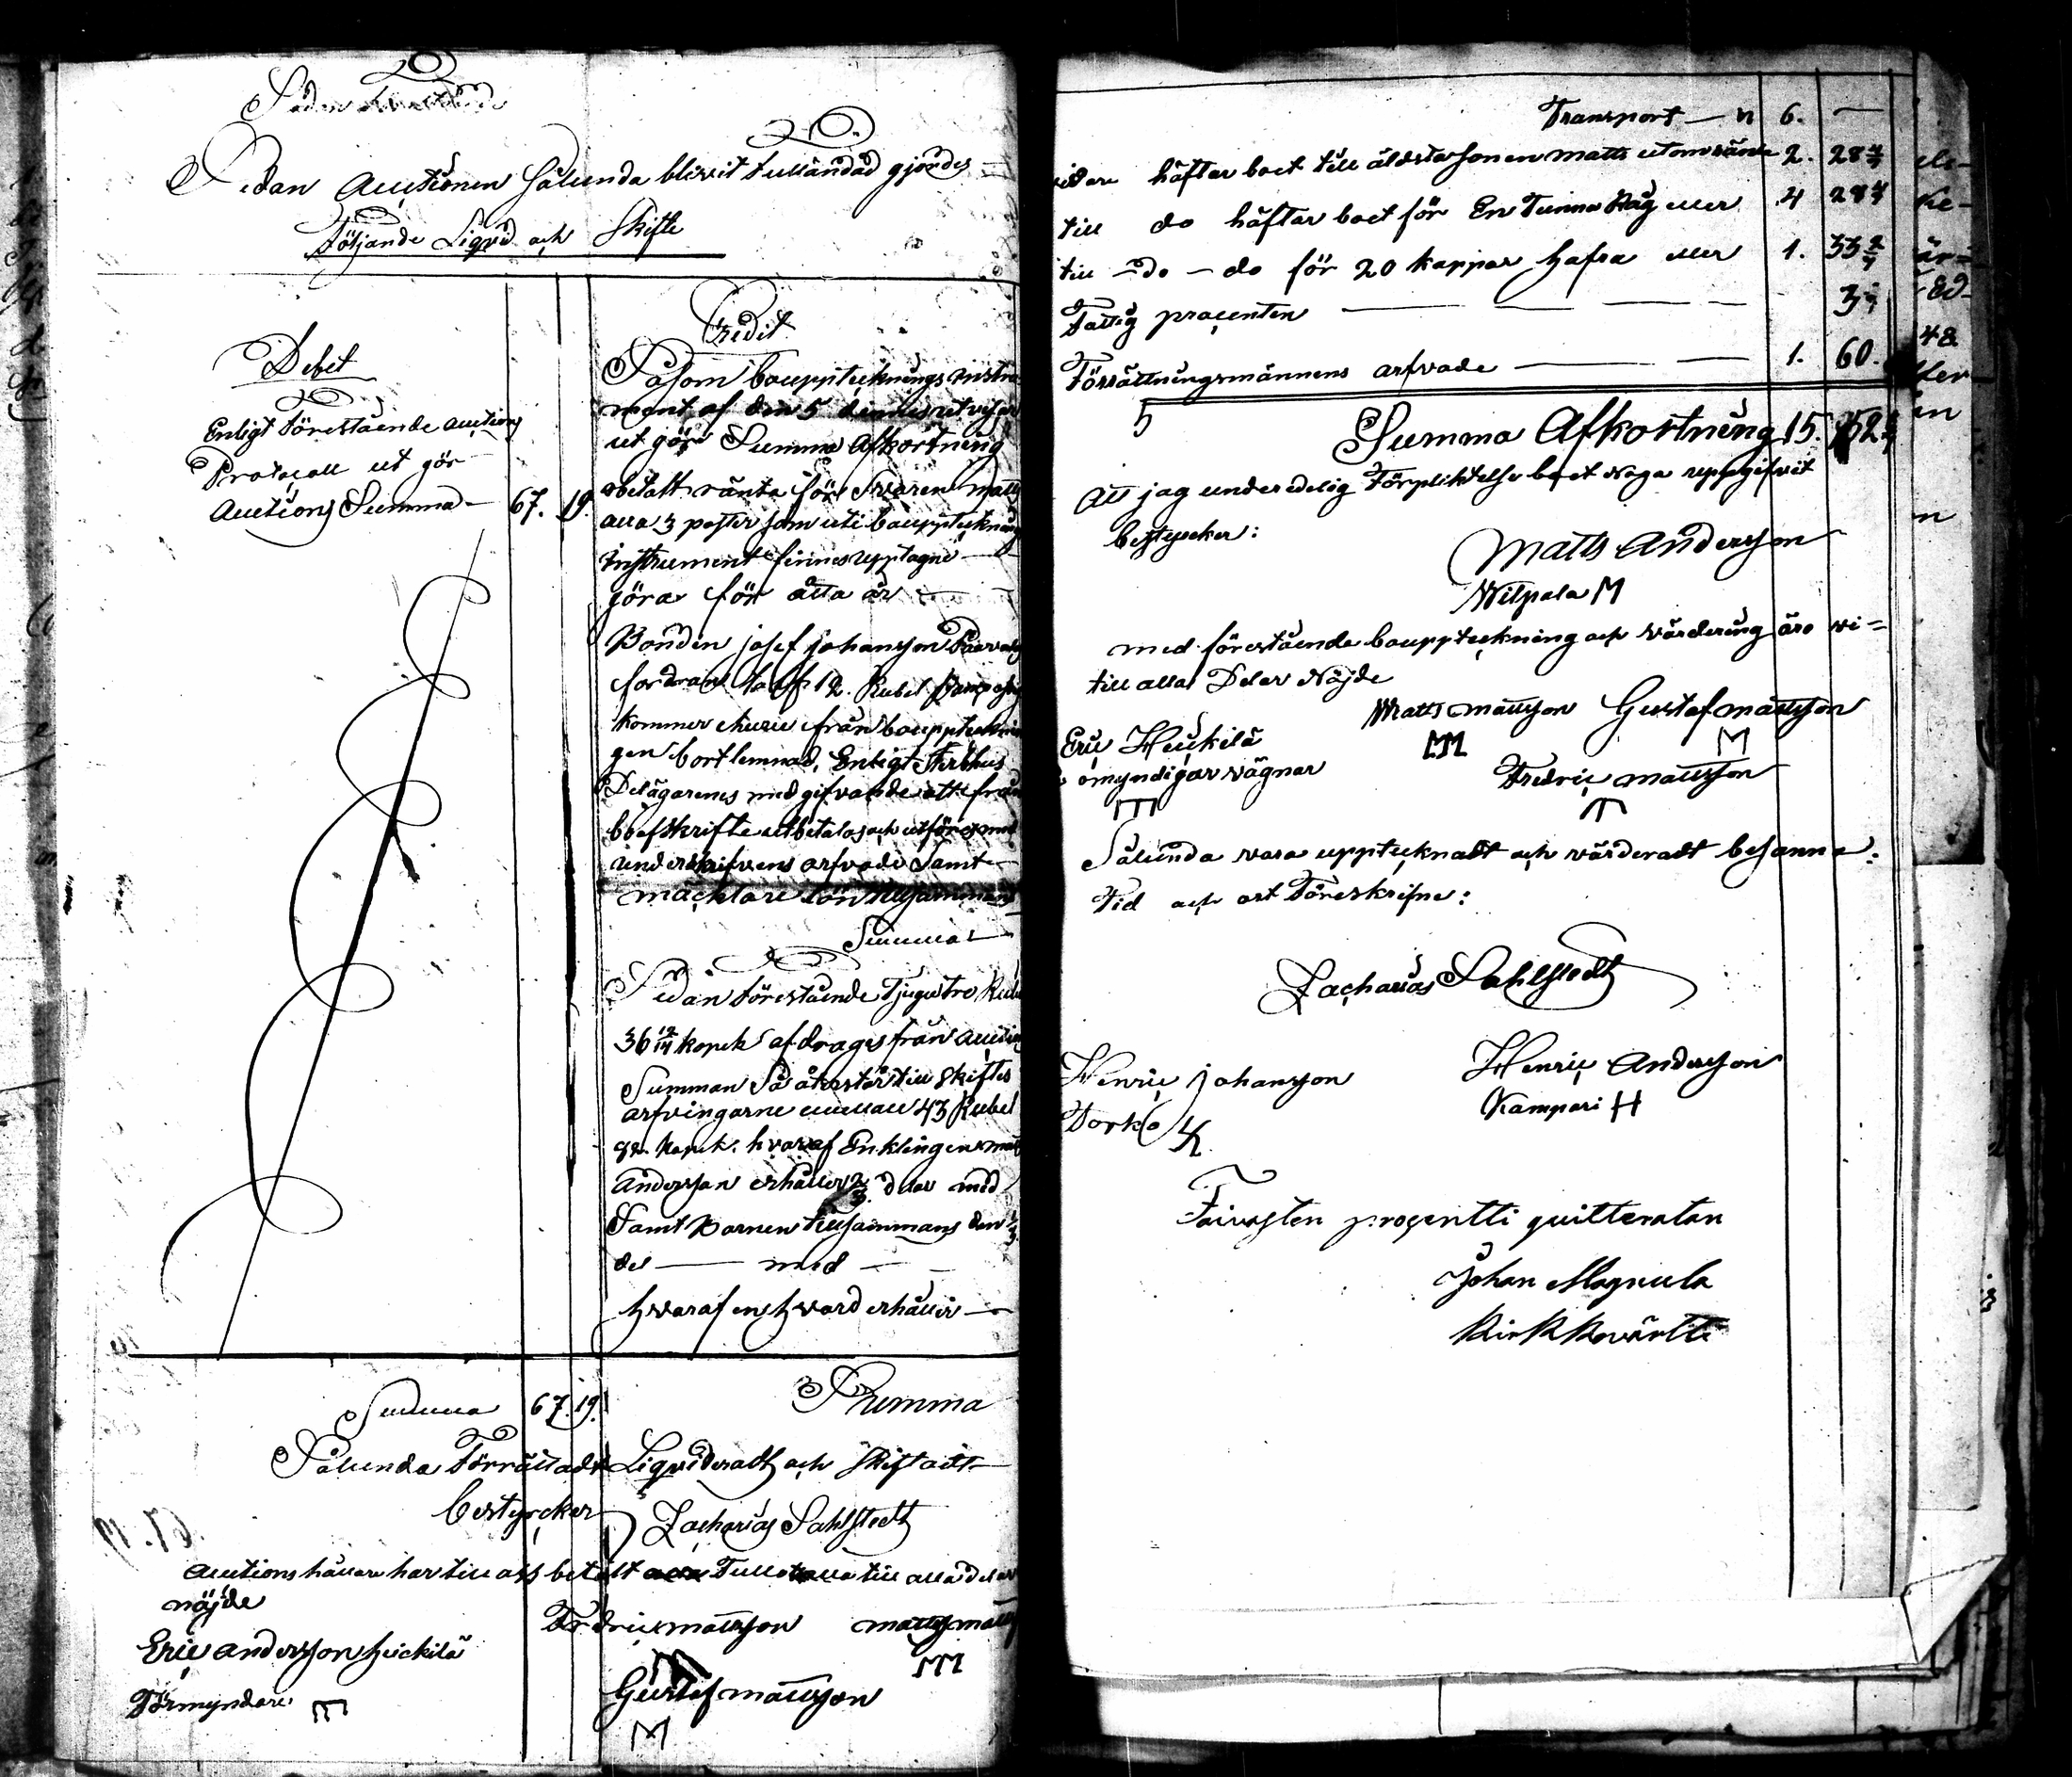 Sedan Auctionen Sålunda blivit fulländad gjordes
följande Liqvid och Skifte
Debet
Enligt förestående auctions
Protocoll ut gör
Auctions Summa 67. 19.
Credit
Såsom boupptecknings instru
ment af den 5 dennes utvisar
ut gör Summa Afkortning
obetalt ränta för Svaren Matts
alla 3 poster som uti bouppteckning
instrument finnes upptagne
göra för åtta år
Bonden josef johansson
fordran 12. Rubel
kommer från boupptecknin
gen bortlemnad, Enligt Sterbhus
Delägarenes medgifvande att från
boskifte utbetalas och utföres med
underskrifvens arfvode Samt
mäcklare lön tillsammans
Summa
Sedan förestående Tjugu tre Rubel
36 12/14 kopek afdrages från Auction
Summan Så återstår till Skiftes
arfvingarne emellan 43 Rubel
82 Kopek. hvaraf Enklingen Matts
Andersson erhåller 2/3 delar med
Samt Barnen tillsammans den 1/3
del — med —
hvaraf en hvard erhåller
Summa 67. 19. Summa
Sålunda Förrättadt Liqvideradt och Skiftadt
bestyrcker Zacharias Sahlstedt
Auctions hållare har till oss betalt Fullo till alla delar
nöjde
Fredric mattsson matts matts
Eric andersson heickilä
Förmyndare
Gustaf mattsson
M
Transport — 6. —
vidare häftar boet till äldsta Sonen Matts utom ränta 2. 28 4/7
till do häftar boet för En Tunna Råg eller 4 28 4/7
till do do för 20 kappar hafra eller 1. 33 2/7
Fattig procenten
Förrättningsmännens arfvode 1. 60.
Summa Afkortning 15.
Att jag under edelig Förpliktelse boet Noga uppgifvit
bestyrcker:
Matts Andersson
Wilpala M
med förestående bouppteckning och värdering äro vi
till alla Delar Nöjde
Matts mattsson Gustaf mattsson
Eric Heickilä M
omyndigas vägnar Fredric mattsson
Sålunda vara upptecknadt och värderadt besanna:
Tid och ort Föreskrifne:
Zacharias Sahlstedt
Henric johansson Henric Andersson
Torko Kampari H
Faivasten prosentti quitteratan
Johan Magnula
Kirkkovärtti